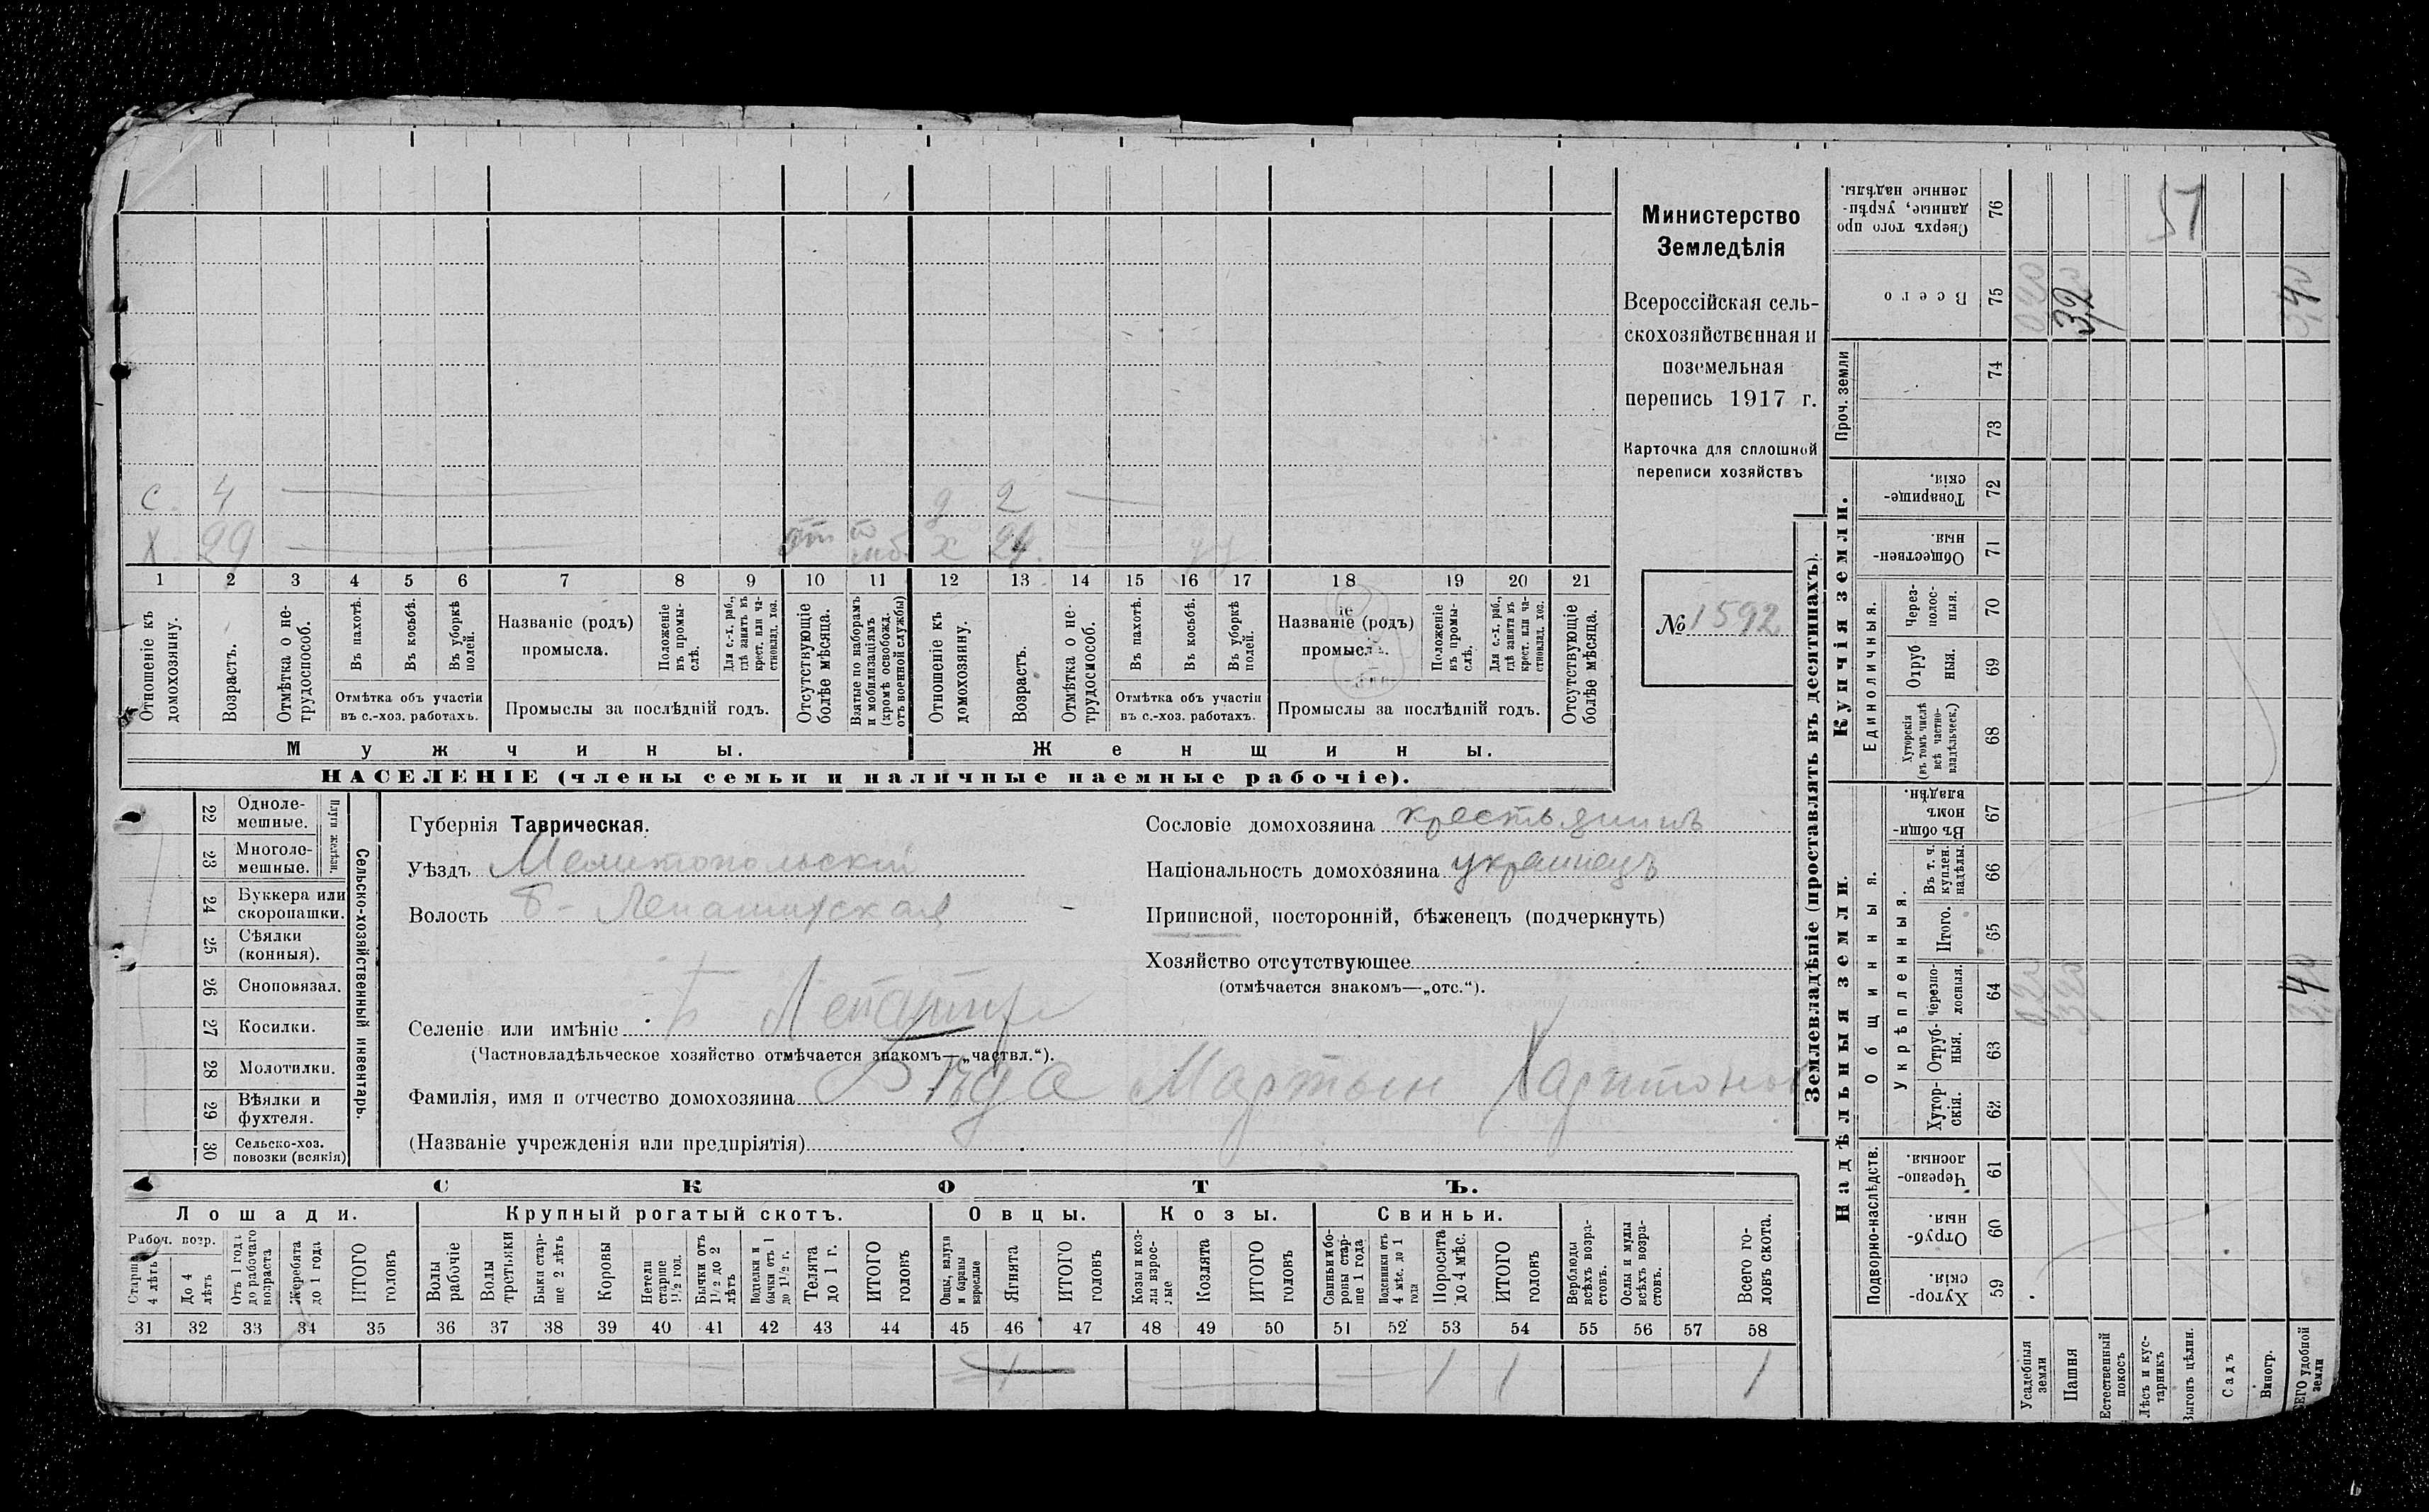 Министерство
Земледѣлія
Всероссійская сель-
скохозяйственная и
поземельная
перепись 1917 г.
Карточка для сплошной
переписи хозяйствъ
№ 1592
с. 4 д 2
х 29 х 24
1 2 3 4 5 6 7 8 9 10 11 12 13 14 15 16 17 18 19 20 21
Отношеніе къ домохозяину.
Возрастъ.
Отмѣтка о не-трудоспособ.
Въ пахотѣ.
Въ косьбѣ.
Въ уборкѣ полей.
Отмѣтка объ участіи
въ с.-хоз. работахъ.
Названіе (родъ)
промысла.
Положеніе въ промы-слѣ.
Для с.-х. раб., гдѣ занятъ въ крест. или ча-стновлад. хоз.
Промыслы за послѣдній годъ.
Отсутствующіе болѣе мѣсяца.
Взятые по наборамъ и мобилизаціямъ (кромѣ освобожд. отъ военной службы)
Отношеніе къ домохозяину.
Возрастъ.
Отмѣтка о не-трудоспособ.
Въ пахотѣ.
Въ косьбѣ.
Въ уборкѣ полей.
Отмѣтка объ участіи
въ с.-хоз. работахъ.
Названіе (родъ)
промысла.
Положеніе въ промы-слѣ.
Для с.-х. раб., гдѣ занята въ крест. или ча-стновлад. хоз.
Промыслы за послѣдній годъ.
Отсутствующіе болѣе мѣсяца.
Мужчины. Женщины.
НАСЕЛЕНІЕ (члены семьи и наличные наемные рабочіе).
22 Одноле-мешные.
23 Многоле-мешные.
Плуги желѣзн.
24 Буккера или скоропашки.
25 Сѣялки (конныя).
26 Сноповязал.
27 Косилки.
28 Молотилки.
29 Вѣялки и фухтеля.
30 Сельско-хоз. повозки (всякія)
Сельско-хозяйственный инвентарь.
Губернія Таврическая.
Уѣздъ Мелитопольскій
Волость Б - Лепатихская
Селеніе или имѣніе Б Лепатиха
(Частновладѣльческое хозяйство отмѣчается знакомъ—„частвл.“).
Фамилія, имя и отчество домохозяина Бѣда Мартын Харитонов
(Названіе учрежденія или предпріятія)
Сословіе домохозяина крестьянинъ
Національность домохозяина украинецъ
Приписной, посторонній, бѣженецъ (подчеркнуть)
Хозяйство отсутствующее
(отмѣчается знакомъ—„отс.“).
СКОТЪ.
Лошади. Крупный рогатый скотъ. Овцы. Козы. Свиньи.
Рабоч. возр.
Старше 4 лѣтъ
До 4 лѣтъ
Отъ 1 года до рабочаго возраста
Жеребята до 1 года
ИТОГО головъ
Волы рабочіе
Волы третьяки
Быки стар-ше 2 лѣтъ
Коровы
Нетели старше 1½ год.
Бычки отъ 1½ до 2 лѣтъ
Подтелки и бычки отъ 1 до 1½ г.
Телята до 1 г.
ИТОГО головъ
Овцы, валухи и бараны взрослые
Ягнята
ИТОГО головъ
Козы и коз-лы взрос-лые
Козлята
ИТОГО головъ
Свиньи и бо-ровы стар-ше 1 года
Подсвинки отъ 4 мѣс. до 1 года
Поросята до 4 мѣс.
ИТОГО головъ
Верблюды всѣхъ возра-стовъ.
Ослы и мулы всѣхъ возра-стовъ.
Всего го-ловъ скота.
31 32 33 34 35 36 37 38 39 40 41 42 43 44 45 46 47 48 49 50 51 52 53 54 55 56 57 58
1 1 1
Землевладѣніе (проставлять въ десятинахъ).
Надѣльныя земли. Купчія земли. Проч. земли
Сверхъ того про-данные, укрѣп-ленные надѣлы. 76 51
Всего 75 0,20 3,2 3,40
74
73
Товарище-скія. 72
Обществен-ныя. 71
Единоличныя.
Через-полос-ныя. 70
Отруб-ныя. 69
Хуторскія (въ томъ числѣ всѣ частно-владѣльческ.) 68
Общинныя.
Въ общин-номъ владѣн. 67
Укрѣпленныя.
Въ т. ч. куплен. надѣлы. 66
Итого. 65
Черезпо-лосныя. 64 0,20 3,20 3,40
Отруб-ныя. 63
Хутор-скія. 62
Подворно-наслѣдств.
Черезпо-лосныя. 61
Отруб-ныя. 60
Хутор-скія. 59
Усадебныя земли
Пашня
Естественный покосъ
Лѣсъ и кус-тарникъ
Выгонъ цѣлин.
Садъ
Виногр.
ВСЕГО удобной земли